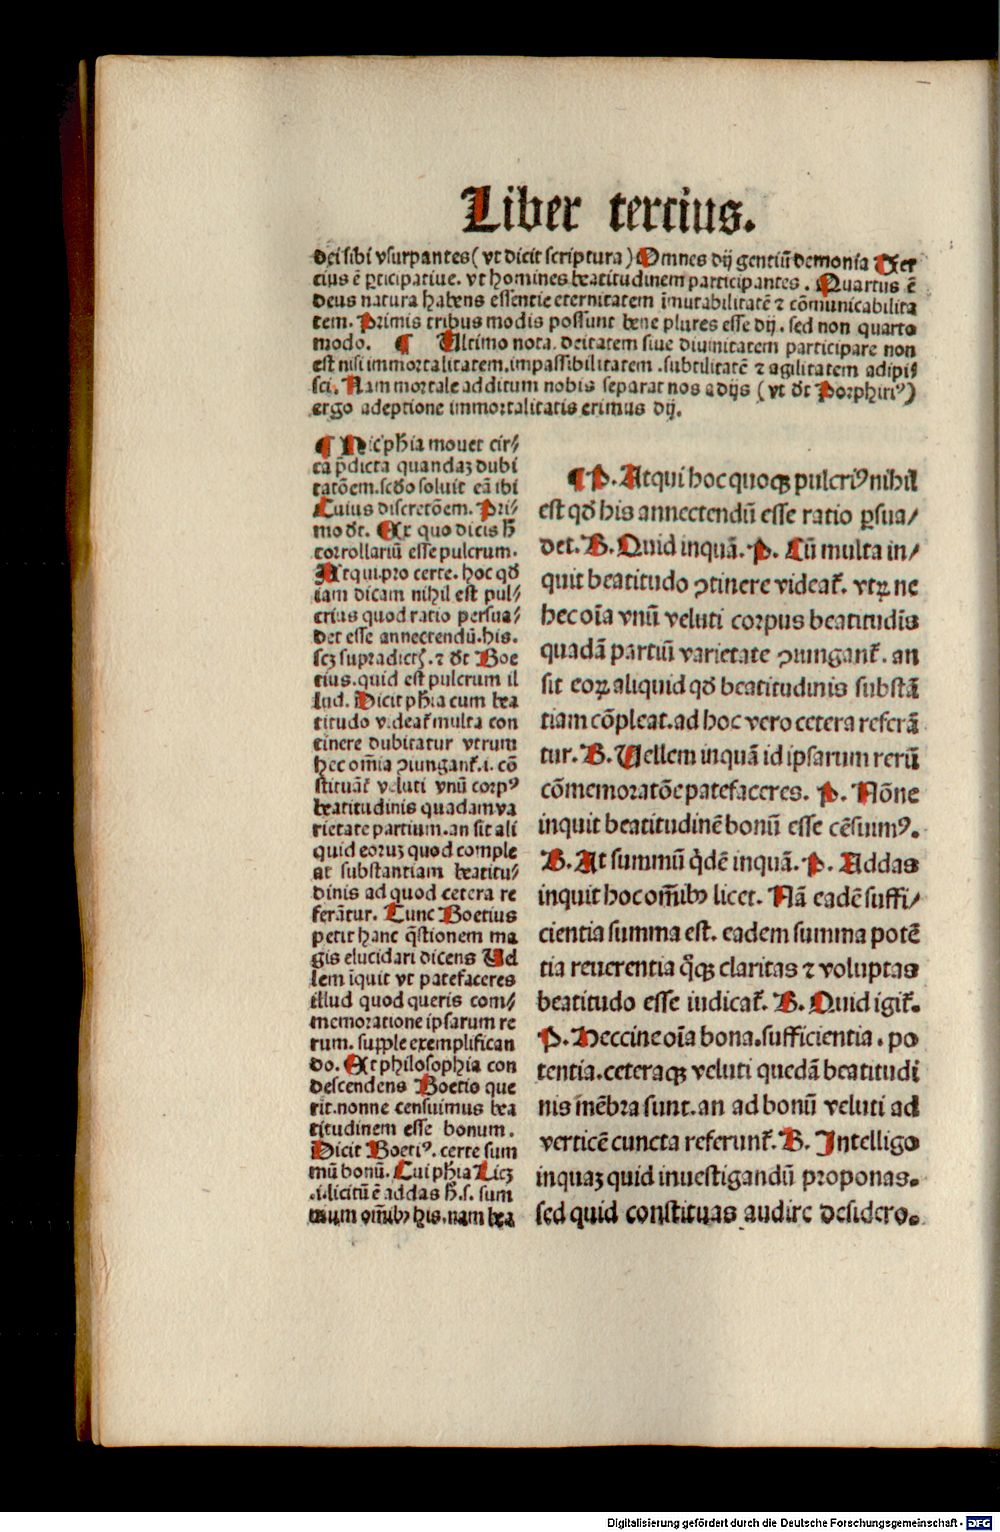 Liber tercius.
dei sibi vsurpantes (vt dicit scriptura) Omnes dij gentiū demonia Ter
cius ē ꝑticipatiue. vt homines beatitudinem participantes. Quartus ē
deus natura habens essentie eternitatem īmutabilitatē ⁊ cōmunicabilita
tem. Primis tribus modis possunt bene plures esse dij. sed non quarto
modo. ¶ Ultimo nota. deitatem siue diuinitatem participare non
est nisi immortalitatem. impassibilitatem. subtilitatē ⁊ agilitatem adipi⸗
sci. Nam mortale additum nobis separat nos a dijs (vt dr̄ Porphiriꝰ)
ergo adeptione immortalitatis erimus dij.
¶ Hic ph̄ia mouet cir⸗
ca p̄dicta quandaz dubi
tatōem. scd̄o soluit eā ibi
Cuius discretōem. Pri⸗
mo dr̄. Ex quo dicis h̄
corrollariū esse pulcrum.
Atqui. pro certe. hoc qd̄
iam dicam nihil est pul⸗
crius quod ratio persua⸗
det esse annectendū. his.
scꝫ supradictꝭ. ⁊ dr̄ Boe
tius. quid est pulcrum il
lud. Dicit ph̄ia cum bea
titudo videat᷑ multa con
tinere dubitatur vtrum
hec om̄ia ꝯiungant᷑. i. cō
stituāt᷑ veluti vnū corpꝰ
beatitudinis quadam va
rietate partium. an sit ali
quid eoruꝫ quod comple
at substantiam beatitu⸗
dinis ad quod cetera re
ferātur. Tunc Boetius
petit hanc q̄stionem ma
gis elucidari dicens Uel
lem īquit vt patefaceres
illud quod queris com⸗
memoratione ipsarum re
rum. supple exemplifican
do. Et philosophia con
descendens Boetio que
rit. nonne censuimus bea
titudinem esse bonum.
Dicit Boetiꝰ. certe sum
mū bonū. Cui ph̄ia Licꝫ
.i. licitū ē addas h̄. s. sum
mum om̄ibꝰ his. nam bea
¶ P. Atqui hoc quoqꝫ pulcriꝰ nihil
est qd̄ his annectendū esse ratio ꝑsua⸗
det. B. Quid inquā. P. Cū multa in⸗
quit beatitudo ꝯtinere videat᷑. vtꝝ ne
hec oīa vnū veluti corpus beatitudīs
quadā partiū varietate ꝯiungant᷑. an
sit eoꝝ aliquid qd̄ beatitudinis substā
tiam cōpleat. ad hoc vero cetera referā
tur. B. Uellem inquā id ipsarum rerū
cōmemoratōe patefaceres. P. Nōne
inquit beatitudinē bonū esse cēsuimꝰ.
B. At summū q̇dē inquā. P. Addas
inquit hoc om̄ibꝰ licet. Nā eadē suffi⸗
cientia summa est. eadem summa potē
tia reuerentia q̄qꝫ claritas ⁊ voluptas
beatitudo esse iudicat᷑. B. Quid igit᷑.
P. Heccine oīa bona. sufficientia. po
tentia. ceteraqꝫ veluti quedā beatitudi
nis mēbra sunt. an ad bonū veluti ad
verticē cuncta referunt᷑. B. Intelligo
inquaꝫ quid inuestigandū proponas.
sed quid constituas audire desidero.
Digitalisierung gefördert durch die Deutsche Forschungsgemeinschaft - DFG